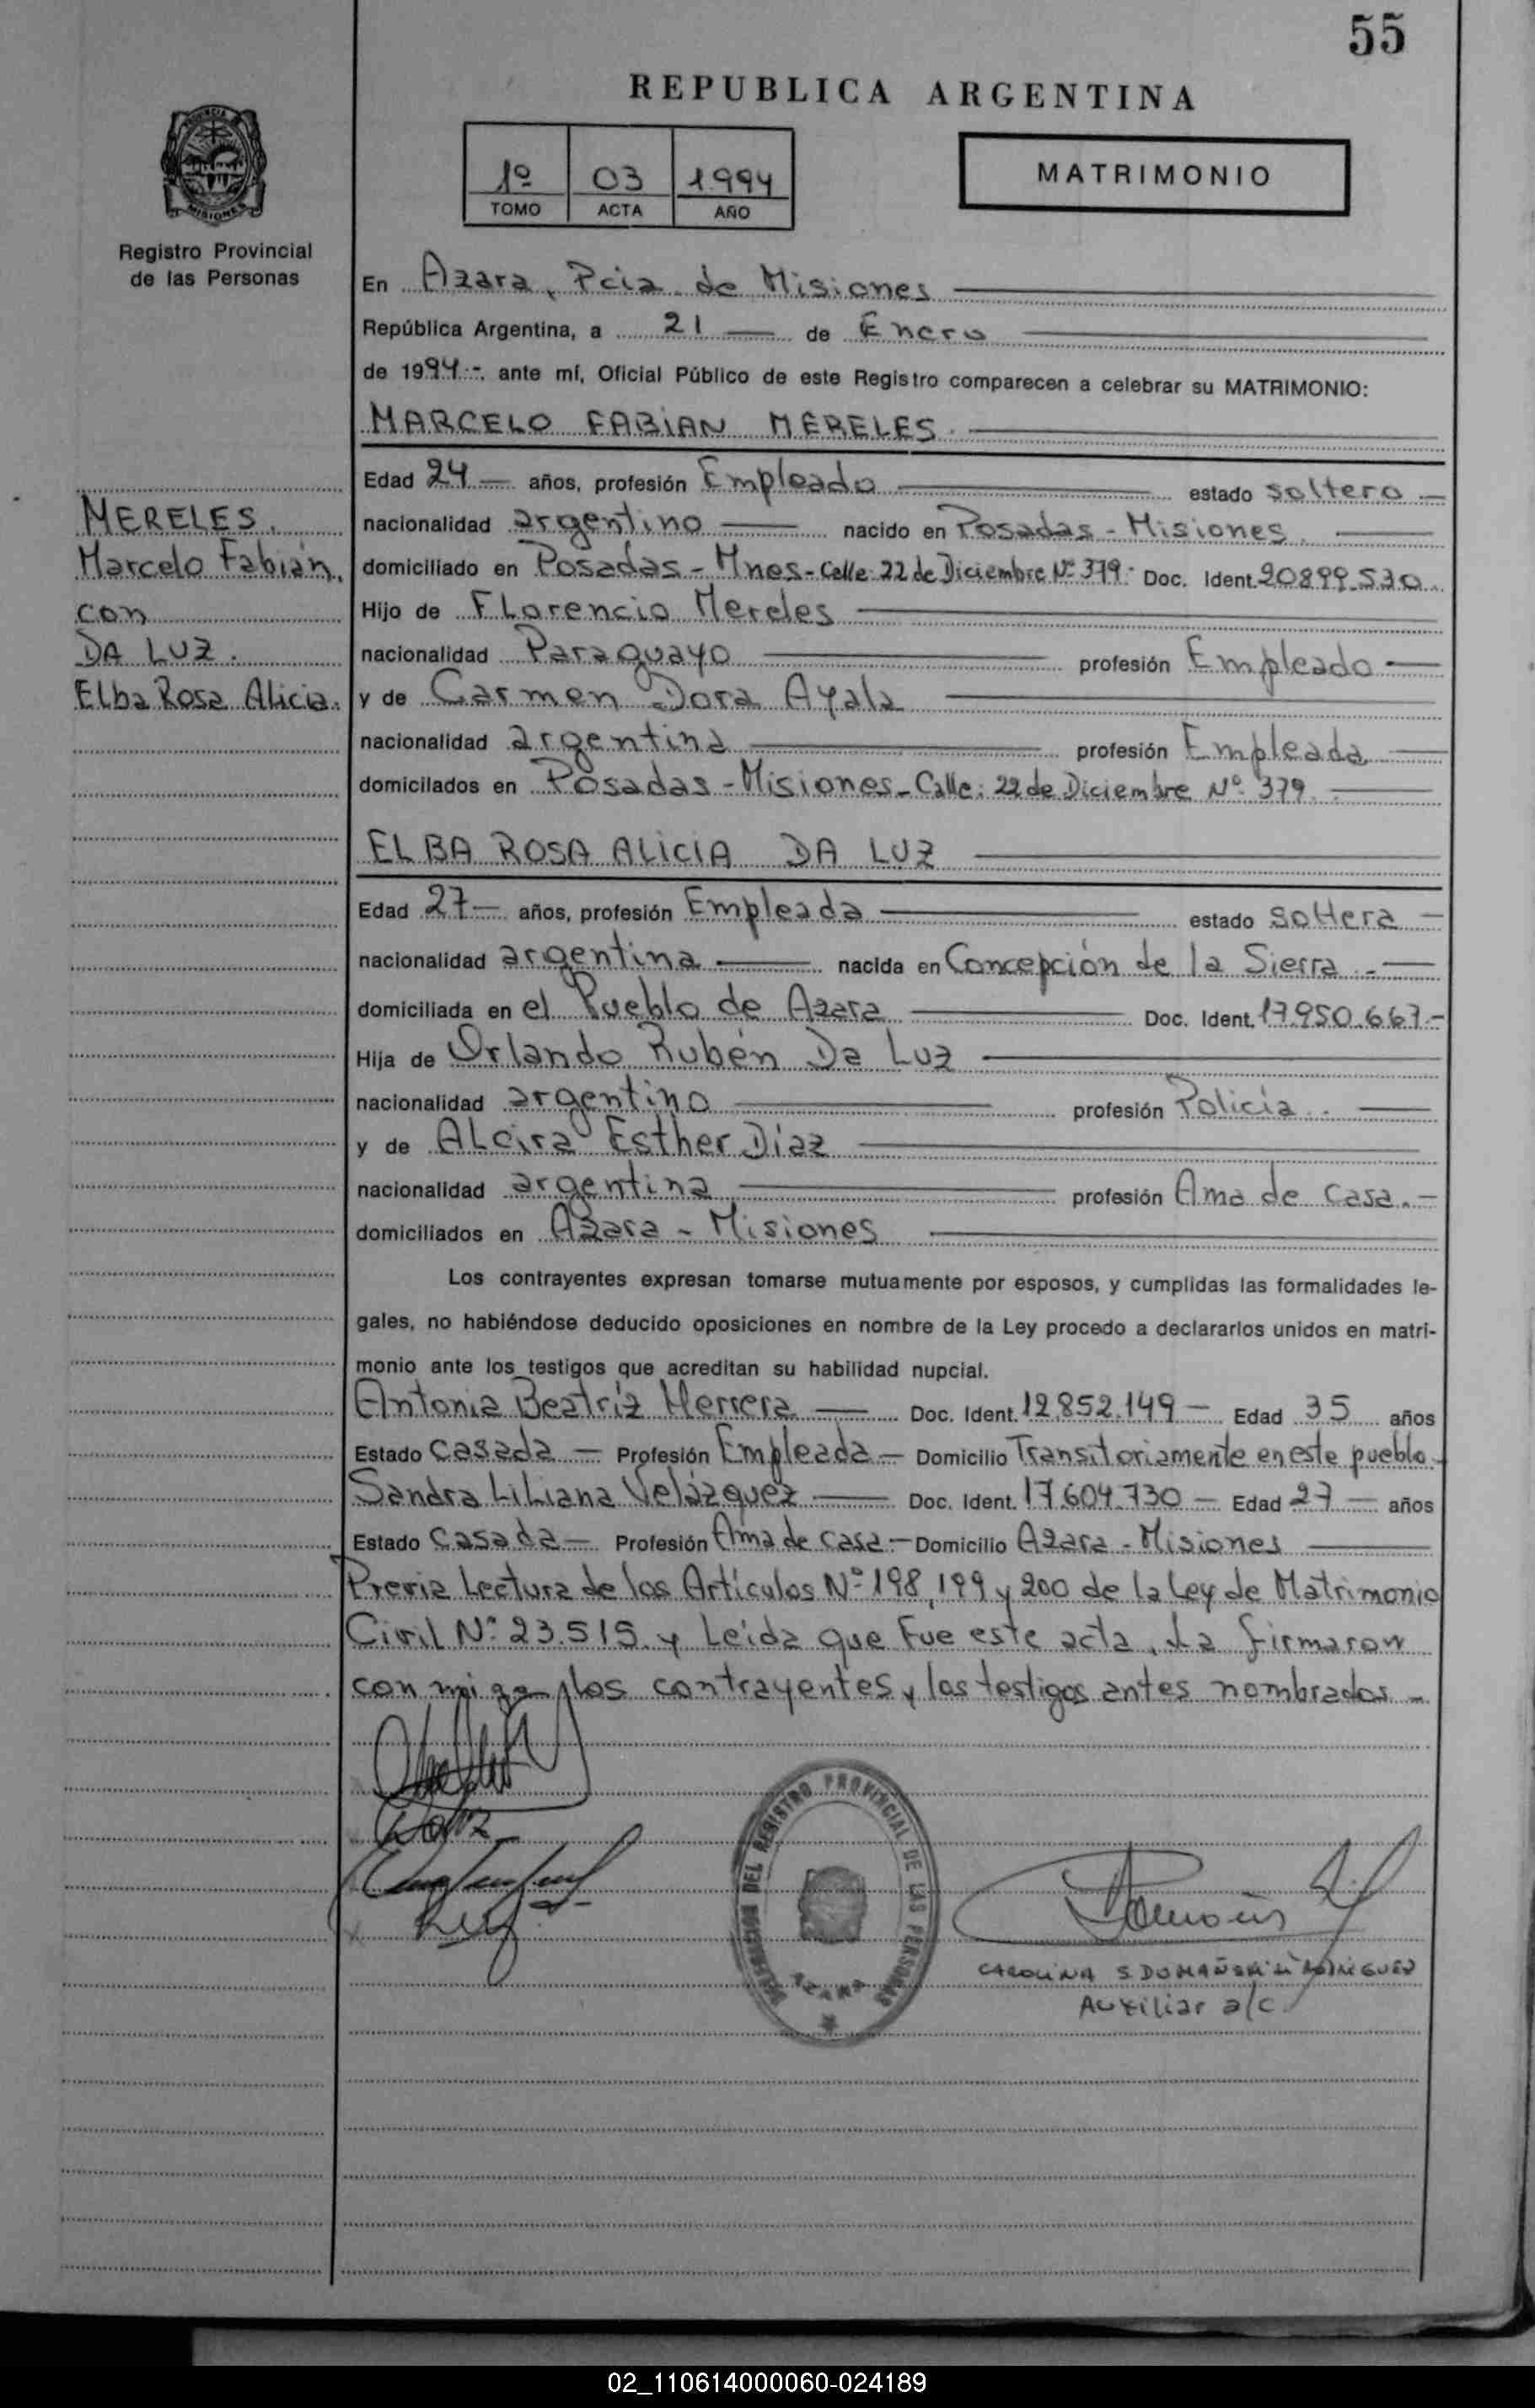 55
REPUBLICA ARGENTINA
1º 03 1994
TOMO ACTA AÑO
MATRIMONIO
MISIONES
Registro Provincial
de las Personas
En Azara, Pcia de Misiones
República Argentina, a 21 de Enero
de 1994.- ante mí, Oficial Público de este Registro comparecen a celebrar su MATRIMONIO:
MARCELO FABIAN MERELES
Edad 24 años, profesión Empleado estado soltero
MERELES.
nacionalidad argentino nacido en Posadas - Misiones
Marcelo Fabián,
domiciliado en Posadas - Mnes - Calle: 22 de Diciembre Nº 379. Doc. Ident. 20899.530
con
Hijo de Florencio Mereles
DA LUZ.
nacionalidad Paraguayo profesión Empleado
Elba Rosa Alicia.
y de Carmen Dora Ayala
nacionalidad argentina profesión Empleada
domicilados en Posadas - Misiones - Calle: 22 de Diciembre Nº 379
ELBA ROSA ALICIA DA LUZ
Edad 27 años, profesión Empleada estado soltera
nacionalidad argentina nacida en Concepción de la Sierra
domiciliada en el Pueblo de Azara Doc. Ident. 17.950.667.-
Hija de Orlando Rubén Da Luz
nacionalidad argentino profesión Policía
y de Alcira Esther Díaz
nacionalidad argentina profesión Ama de Casa.-
domiciliados en Azara - Misiones
Los contrayentes expresan tomarse mutuamente por esposos, y cumplidas las formalidades le-
gales, no habiéndose deducido oposiciones en nombre de la Ley procedo a declararlos unidos en matri-
monio ante los testigos que acreditan su habilidad nupcial.
Antonia Beatriz Herrera Doc. Ident. 12.852.149 Edad 35 años
Estado Casada Profesión Empleada Domicilio Transitoriamente en este pueblo
Sandra Liliana Velázquez Doc. Ident. 17.604.730 Edad 27 años
Estado Casada Profesión Ama de casa Domicilio Azara - Misiones
Previa Lectura de los Artículos Nº 198, 199 y 200 de la Ley de Matrimonio
Civil Nº 23.515 y Leida que fue este acta, La firmaron
con migo los contrayentes y los testigos antes nombrados -
DEL REGISTRO PROVINCIAL DE LAS PERSONAS
AZARA
CAROLINA S. DOMAÑSKI de RODRIGUEZ
Auxiliar a/c.
02_110614000060-024189